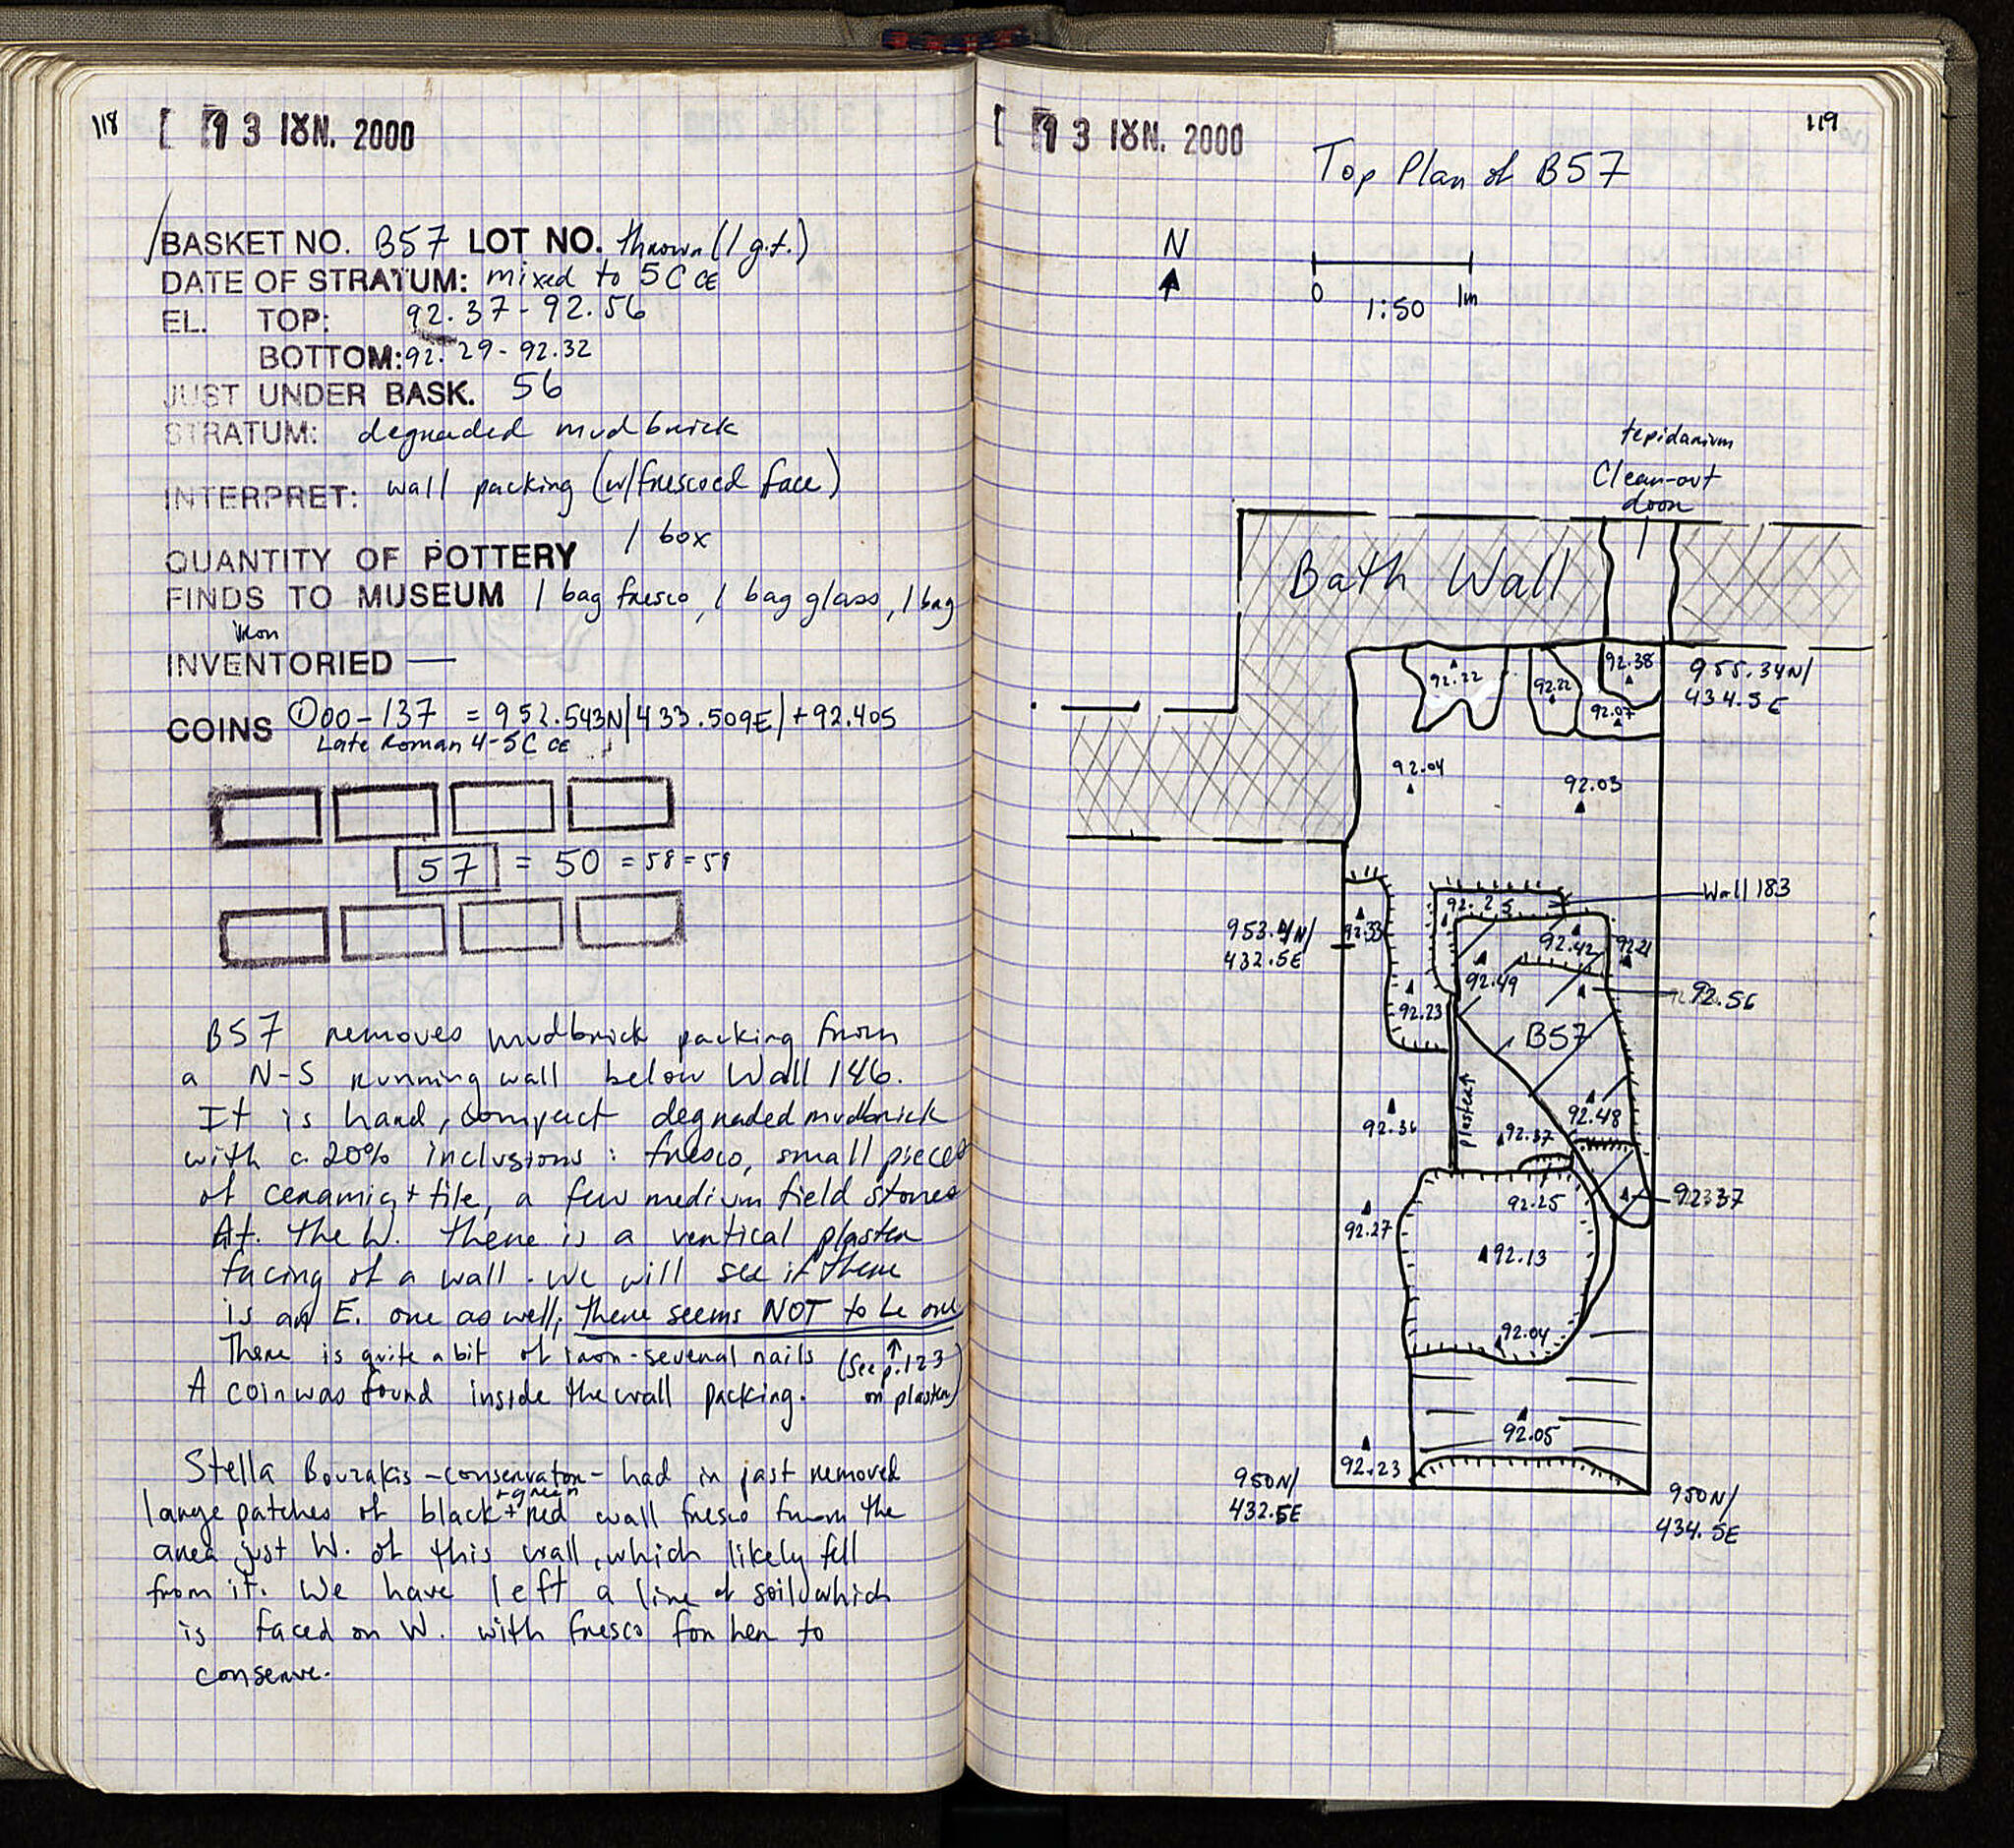 118
[ 13 ΙΟΥΝ. 2000
BASKET NO. B57 LOT NO. thrown (1 g.t.)
DATE OF STRATUM: mixed to 5C CE
EL. TOP: 92.37 - 92.56
BOTTOM: 92.29 - 92.32
JUST UNDER BASK. 56
STRATUM: degraded mudbrick
INTERPRET: wall packing (w/frescoed face)
QUANTITY OF POTTERY 1 box
FINDS TO MUSEUM 1 bag fresco, 1 bag glass, 1 bag
iron
INVENTORIED —
COINS ①00-137 = 952.543N/433.509E/+92.405
Late Roman 4-5C CE
57 = 50 = 58 = 59
B57 removes mudbrick packing from
a N-S running wall below Wall 146.
It is hard, compact degraded mudbrick
with c. 20% inclusions: fresco, small pieces
of ceramic + tile, a few medium field stones
At. the W. there is a vertical plaster
facing of a wall. We will see if there
is an E. one as well; there seems NOT to be one
There is quite a bit of iron-several nails (See p.123
A coin was found inside the wall packing. on plaster)
Stella Bouzakis -conservator- had in past removed
large patches of black + red + green wall fresco from the
area just W. of this wall, which likely fell
from it. We have left a line of soil which
is faced on W. with fresco for her to
conserve.
[ 13 ΙΟΥΝ. 2000
119
Top Plan of B57
N
0 1m
1:50
tepidarium
Clean-out
door
Bath Wall
92.22
92.22
92.38
92.07
955.34N/
434.5E
92.04
92.03
Wall 183
92.25
953.4N/
432.5E
92.33
92.42
92.21
92.49
92.56
92.23
B57
plaster
92.36
92.37
92.48
92.37
92.25
92.27
92.13
92.04
92.05
92.23
950N/
432.5E
950N/
434.5E